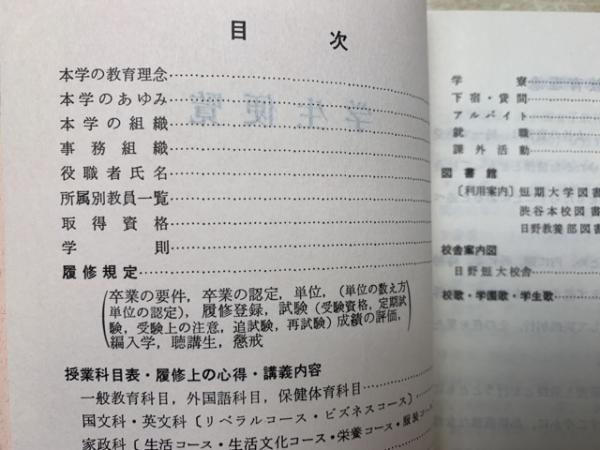 目次
本学の教育理念
本学のあゆみ
本学の組織
事務組織
役職者氏名
所属別教員一覧
取得資格
学則
履修規定
(卒業の要件，卒業の認定，単位，(単位の数え方
単位の認定)，履修登録，試験(受験資格，定期試
験，受験上の注意，追試験，再試験)成績の評価，
編入学，聴講生，懲戒
授業科目表・履修上の心得・講義内容
一般教育科目，外国語科目，保健体育科目
国文科・英文科〔リベラルコース・ビズネスコース〕
家政科〔生活コース・生活文化コース・栄養コース・服装コース
学生便覧
学寮
下宿・貸間
アルバイト
就職
課外活動
図書館
〔利用案内〕短期大学図書
渋谷本校図書
日野教養部図書
校舎案内図
日野短大校舎
校歌・学園歌・学生歌